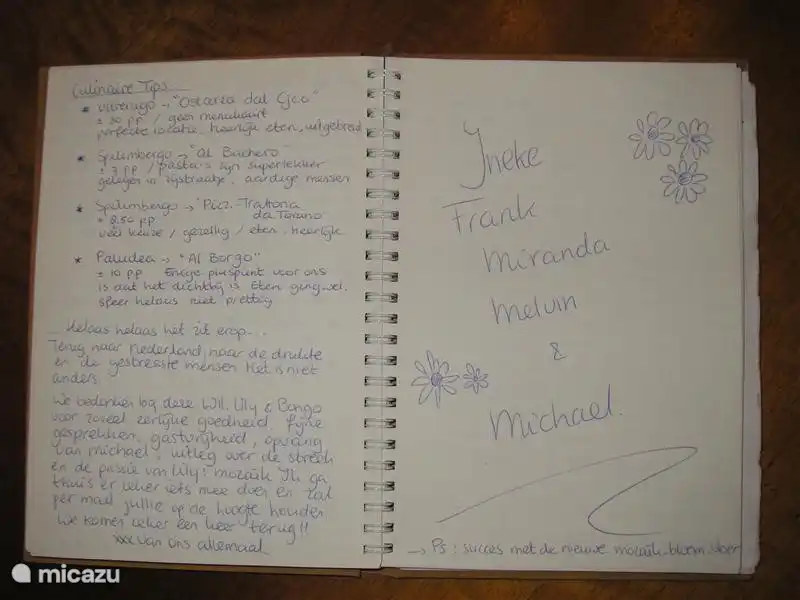 Culinaire Tips
* → "Osteria dal Cjco"
± 30 p.p / geen menukaart
perfecte locatie, heerlijk eten, uitgebreid
* Spilimbergo → "Al Bachero"
± 3 pp / pasta's zijn superlekker
gelegen in zijstraatje, aardige mensen
* Spilimbergo → Picz. Trattoria
da Torino
± 8.50 p.p.
veel keuze / gezellig / eten heerlijk
* Paludea → "Al Borgo"
± 10 p.p Enige pluspunt voor ons
is dat het dichtbij is. Eten ging wel.
sfeer helaas niet prettig
... Helaas helaas het zit erop...
Terug naar Nederland, naar de drukte
en de gestresste mensen. Het is niet
anders
We bedanken bij deze Will, Lily & Bongo
voor zoveel eerlijke goedheid, fijne
gesprekken, gastvrijheid, opvang
van michael, uitleg over de streek
en de passie van Lily: mozaïk. Ik ga
thuis er zeker iets mee doen en zal
per mail jullie op de hoogte houden
We komen zeker een keer terug!!
xxx van ons allemaal
Yneke
Frank
Miranda
Melvin
&
Michael.
→ Ps: succes met de nieuwe mozaïk-bloem vloer
micazu